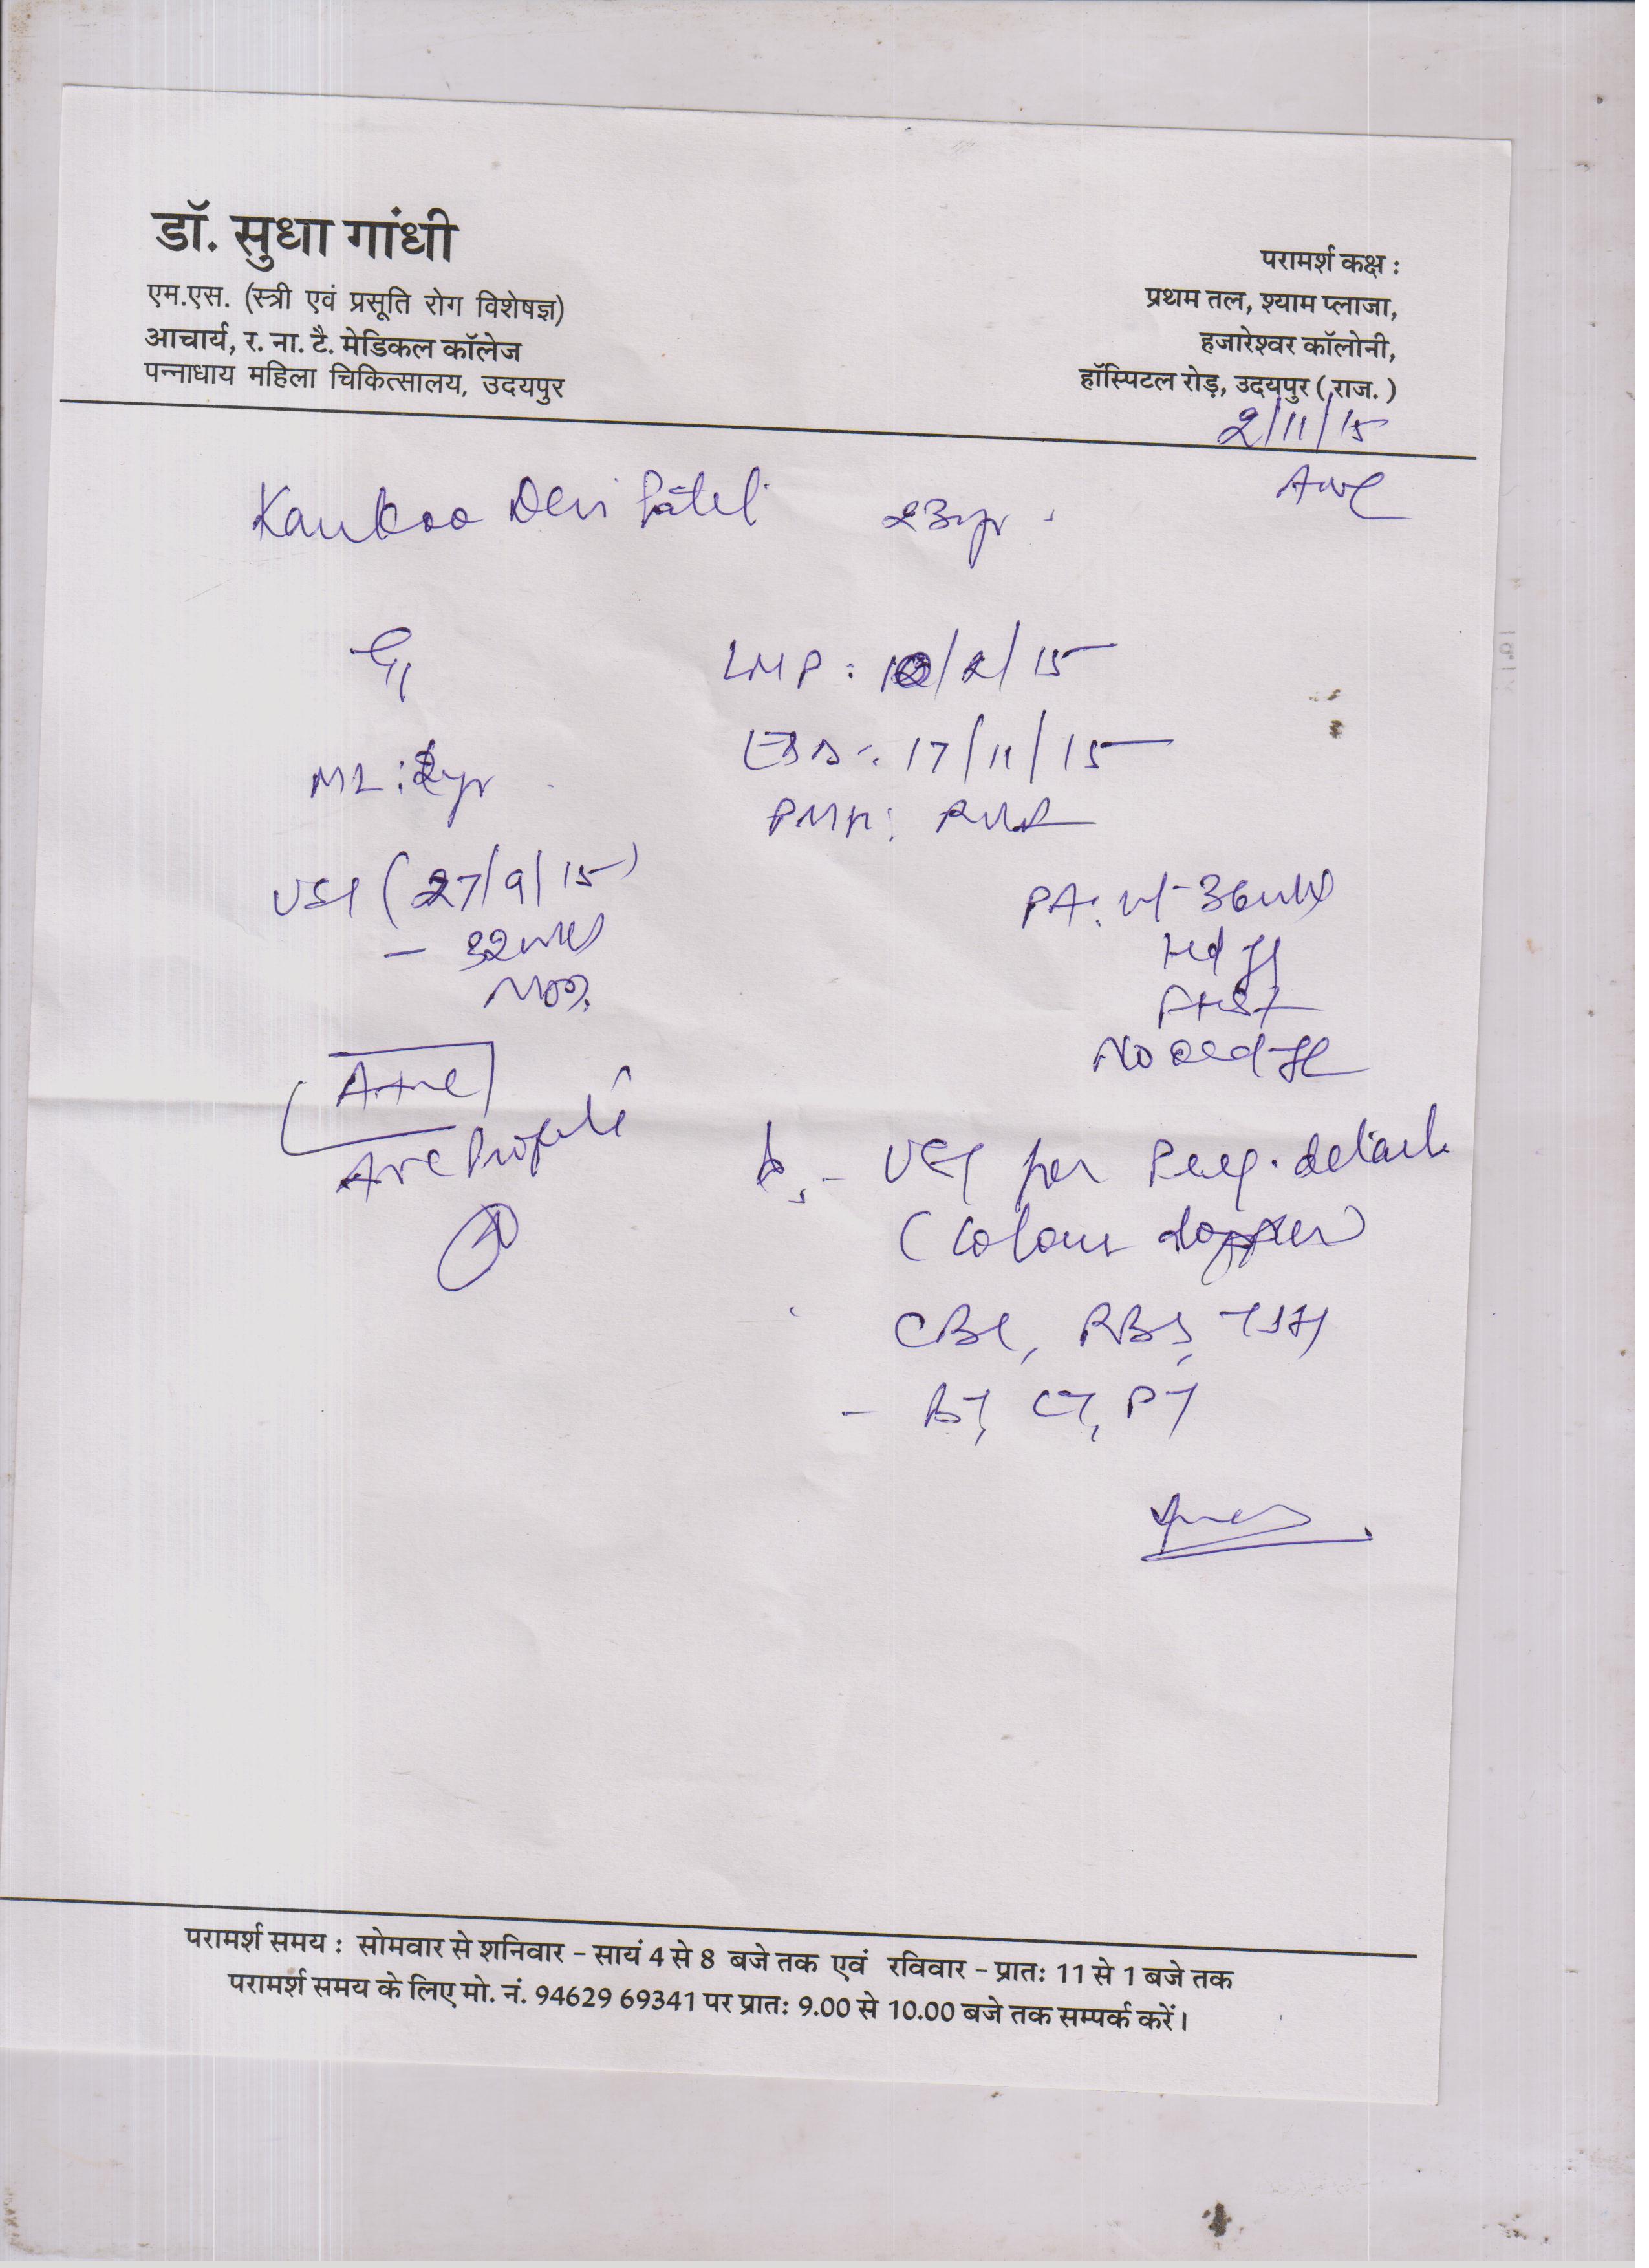 डॉ. सुधा गांधी
एम.एस. (स्त्री एवं प्रसूति रोग विशेषज्ञ)
आचार्य, र. ना. टै. मेडिकल कॉलेज
पन्नाधाय महिला चिकित्सालय, उदयपुर
परामर्श कक्ष :
प्रथम तल, श्याम प्लाजा,
हजारेश्वर कॉलोनी,
हॉस्पिटल रोड़, उदयपुर ( राज. )
2/11/15
ANC
Kankoo Devi Patel 23yr.
G1
LMP : 10/2/15
ML : 2yr
EDD : 17/11/15
PMH : RMP
USG (27/9/15)
- 32 wks
PA : ut - 36 wks
Hd ff
FHS +
No oed
ANC Profile
USG for Preg. details
(Colour doppler)
CBC, RBS, TSH
- BT, CT, PT
परामर्श समय : सोमवार से शनिवार - सायं 4 से 8 बजे तक एवं रविवार - प्रातः 11 से 1 बजे तक
परामर्श समय के लिए मो. नं. 94629 69341 पर प्रातः 9.00 से 10.00 बजे तक सम्पर्क करें।